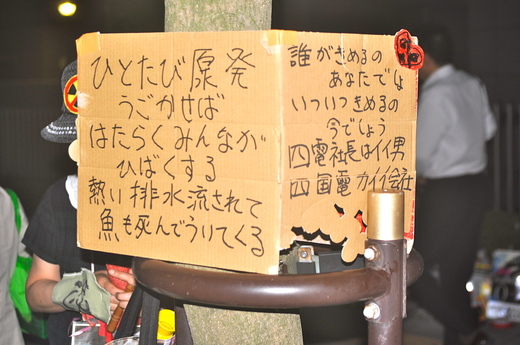 ひとたび原発
うごかせば
はたらくみんなが
ひばくする
熱い排水流されて
魚も死んでういてくる
誰がきめるの
あなたでは
いついつきめるの
今でしょう
四電社長はイイ男
四国電力イイ会社